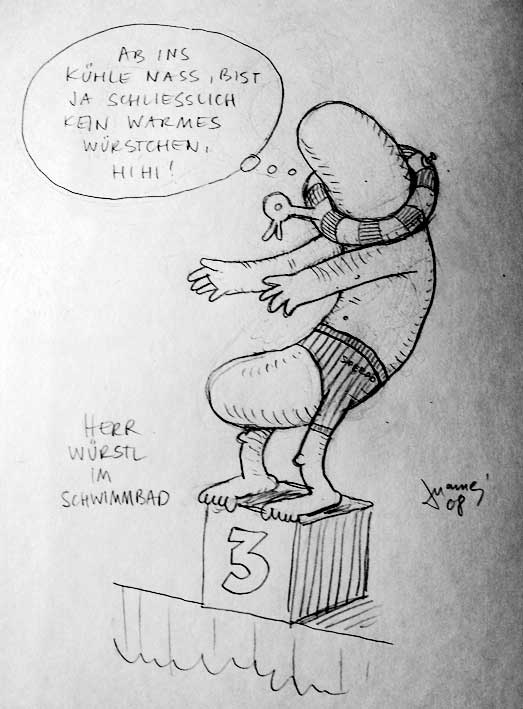 AB INS
KÜHLE NASS, BIST
JA SCHLIESSLICH
KEIN WARMES
WÜRSTCHEN,
HIHI!
HERR
WÜRSTL
IM
SCHWIMMBAD
3
'08